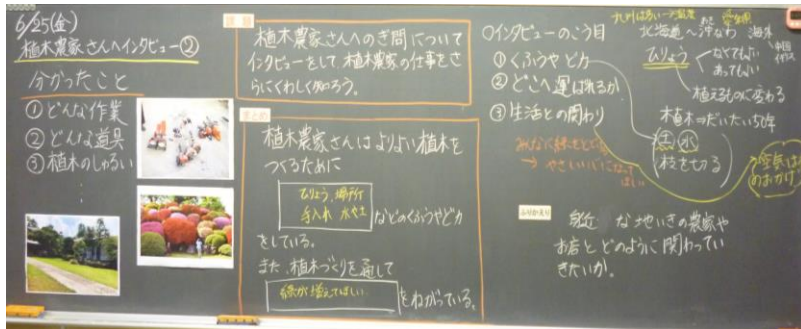 6/25(金)
植木農家さんへインタビュー②
分かったこと
①どんな作業
②どんな道具
③植木のしゅるい
課題
植木農家さんへのぎ問について
インタビューをして、植木農家の仕事をさ
らにくわしく知ろう。
まとめ
植木農家さんはよりよい植木を
つくるために
ひりょう、場所
手入れ 水や土
などのくふうやど力
をしている。
また、植木づくりを通して
緑が増えてほしい
をねがっている。
○インタビューのこう目
①くふうやど力
②どこへ運ばれるか
③生活との関わり
みんなに緑をとどける
→やさしい心になって
ほしい
北海道〜沖なわ 海外
中国
イギリス
ひりょう
なくてもいい
あってもいい
→植えるものに変わる
植木⇒だいたい5年
土 水
枝を切る
空気は
のおかげ!
ふりかえり
身近な地いきの農家や
お店とどのように関わってい
きたいか。